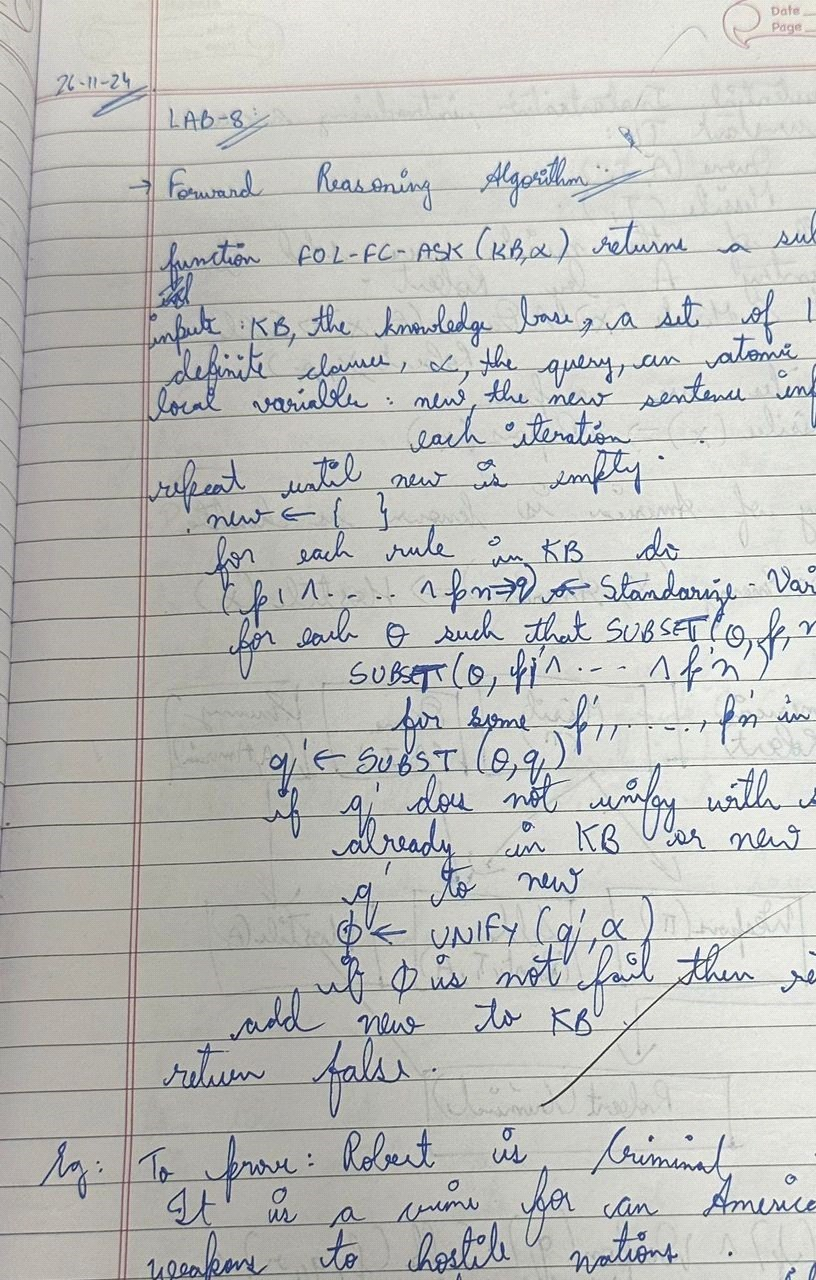 Date
Page
26-11-24
LAB-8:
→ Forward Reasoning Algorithm:
function FOL-FC-ASK(KB,α) returns a sub
input: KB, the knowledge base, a set of 1
definite clauses, α, the query, an atomic
local variable: new, the new sentence inf
each iteration
repeat until new is empty.
new ← { }
for each rule in KB do
(p1 ∧ .... ∧ pn ⇒ q) ← Standarize-Vari
for each θ such that SUBSET(θ, p, n
SUBSET(θ, p'1 ∧ --- ∧ p'n)
for some p'1, ....., p'n in
q' ← SUBST (θ,q)
if q' does not unifgy with s
already in KB or new
q' to new
ϕ ← UNIFY (q', α)
if ϕ is not fail then re
add new to KB
return false.
Eg: To prove: Robert is Criminal
It is a crime for an America
weapons to hostile nations.